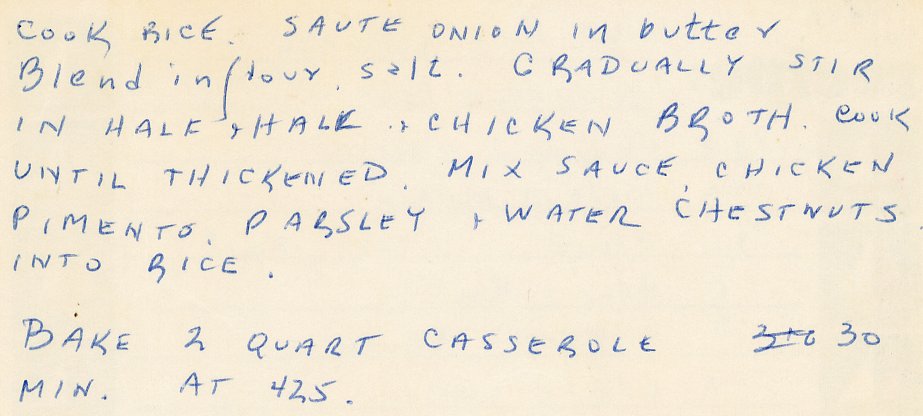 COOK RICE. SAUTE ONION in butter
Blend in flour, salt. GRADUALLY STIR
IN HALF + HALF + CHICKEN BROTH. COOK
UNTIL THICKENED. MIX SAUCE, CHICKEN
PIMENTO, PARSLEY + WATER CHESTNUTS
INTO RICE.
BAKE 2 QUART CASSEROLE 30
MIN. AT 425.